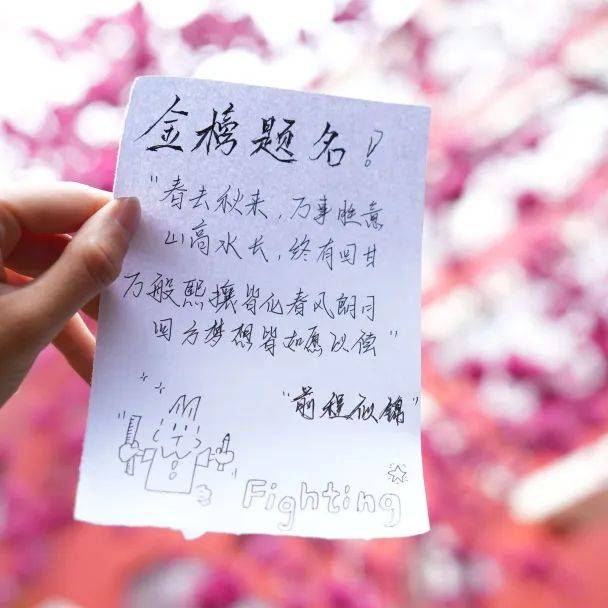 金榜题名!
"春去秋来,万事胜意
山高水长,终有回甘
万般熙攘皆化春风朗月
四方梦想皆如愿以偿"
"前程似锦"
Fighting